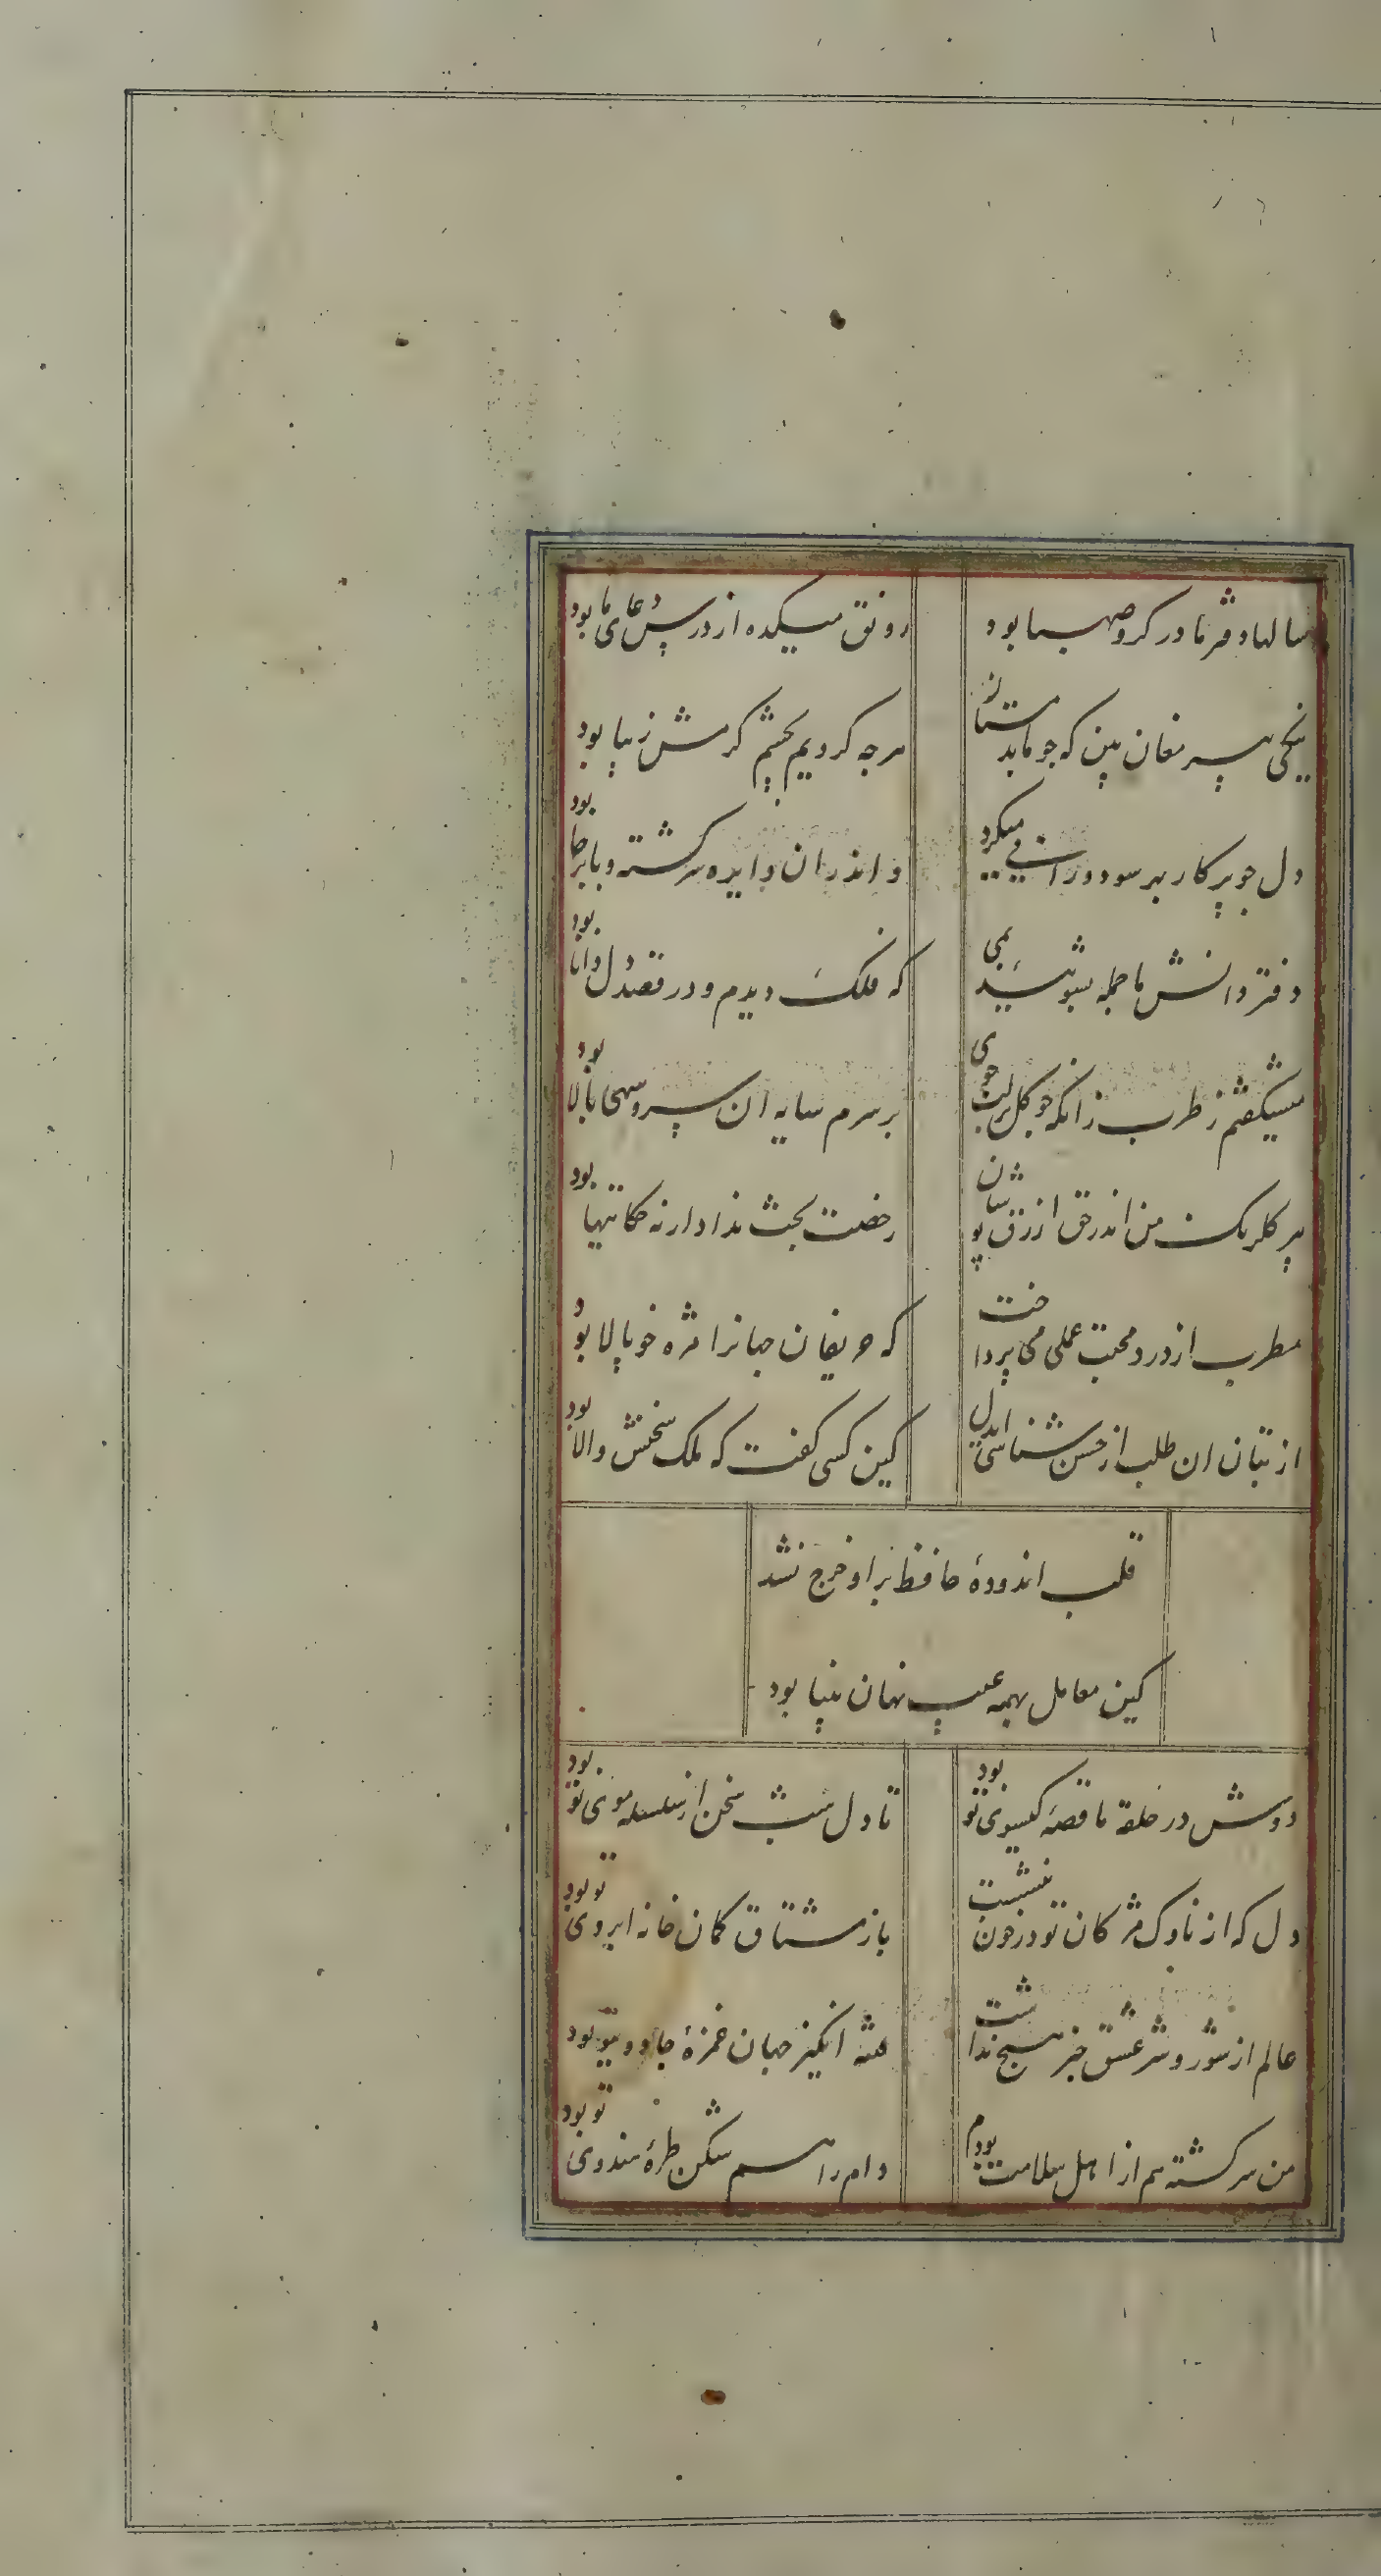 سالها دفتر ما در کرو صهبا بود
رونق میکده از درس و دعای ما بود
نیکی پیر مغان بین که جو ما بدمستان
هرجه کردیم بچشم کرمش زیبا بود
دل جو پرکار بهر سو دورانی میکرد
و اندران دایره سرکشته و پابرجا بود
دفتر دانش ما جمله بشویید بمی
که فلک دیدم و در قصد دل دانا بود
میشکفتم ز طرب زانکه جو کل بر لب جوی
بر سرم سایه ان سرو سهی بالا بود
پیر کلرنک من اندر حق ازرق پوشان
رخصت بحث نداد ارنه حکایتها بود
مطرب از درد محبت عملی می پرداخت
که حریفان جهانرا مژه خونپالا بود
از بتان ان طلب ار حسن شناسی ایدل
کین کسی کفت که ملک سخنش والا بود
قلب اندودهٔ حافظ بر او خرج نشد
کین معامل بهمه عیب نهان بینا بود
دوش در حلقه ما قصه کیسوی تو بود
تا دل شب سخن از سلسله موی تو بود
دل که از ناوک مژکان تو در خون نشست
باز مشتاق کمان خانه ابروی تو بود
عالم از شور و شر عشق خبر هیج نداشت
فتنه انکیز جهان غمزهٔ جادوی تو بود
من سرکشته هم از اهل سلامت بودم
دام راهم شکن طرهٔ هندوی تو بود